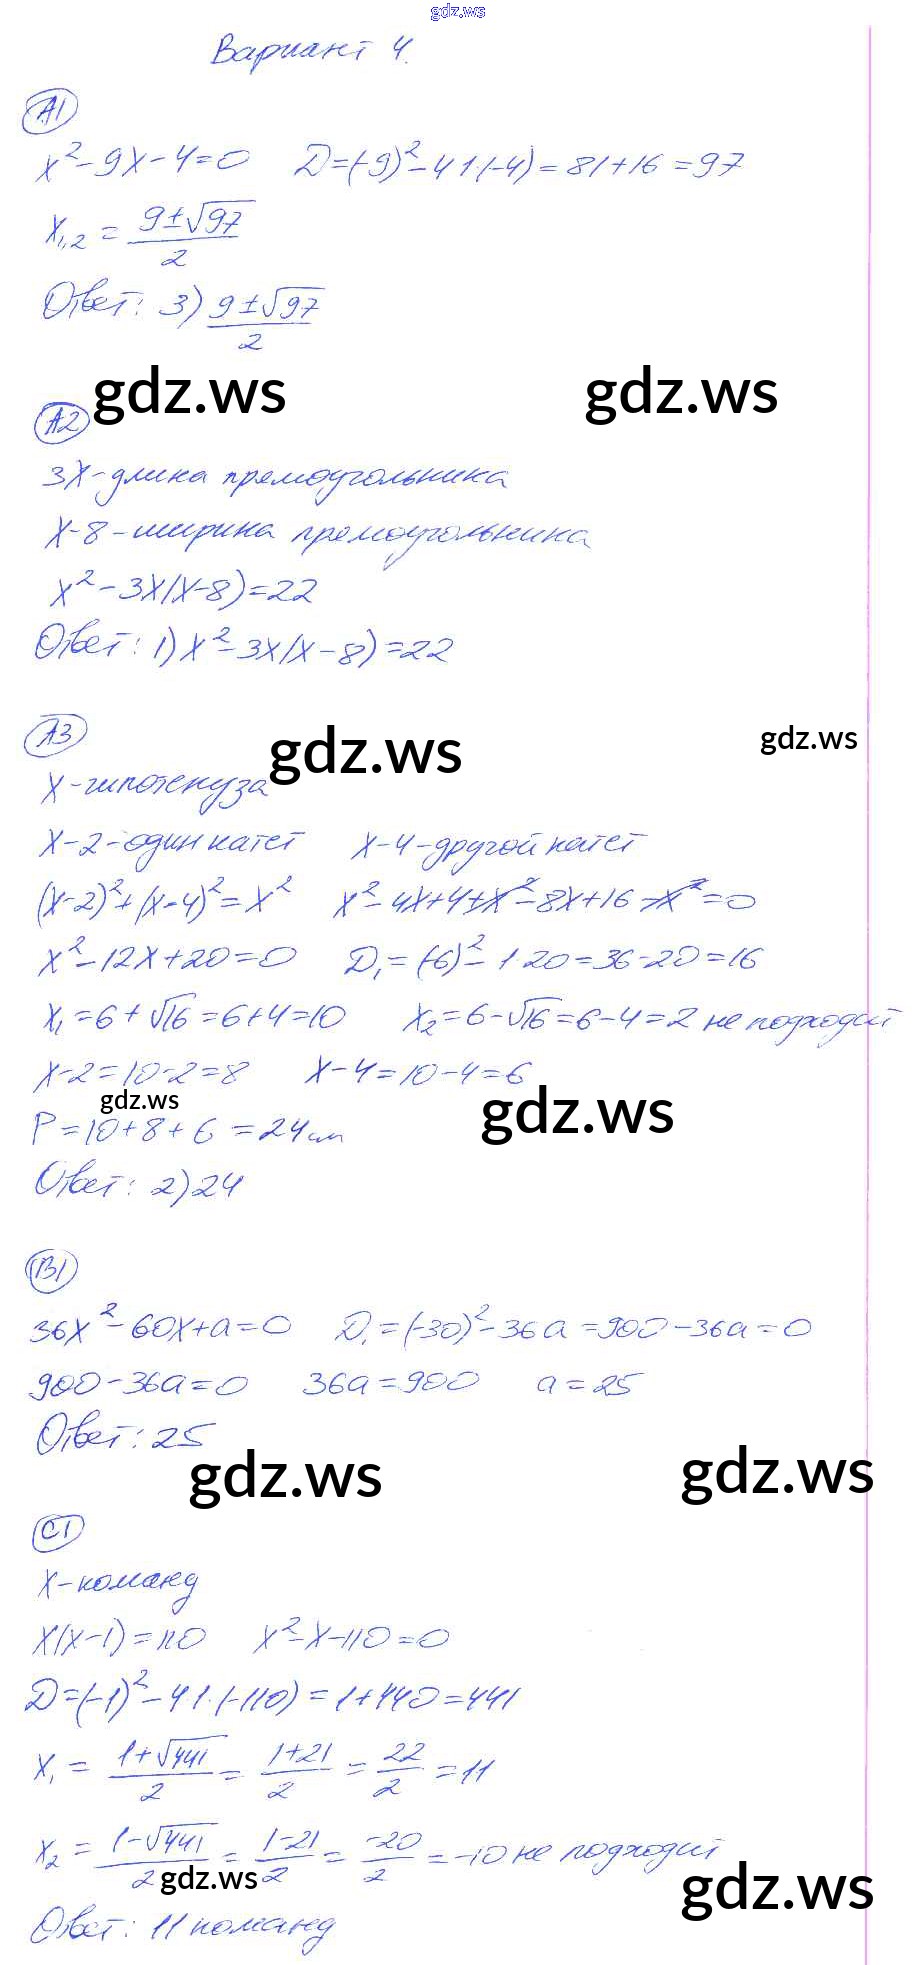 gdz.ws
Вариант 4.
А1
x² - 9x - 4 = 0 D = (-9)² - 4·1·(-4) = 81 + 16 = 97
x₁,₂ = (9 ± √97)/2
Ответ: 3) (9 ± √97)/2
gdz.ws gdz.ws
А2
3x - длина прямоугольника
x - 8 - ширина прямоугольника
x² - 3x(x - 8) = 22
Ответ: 1) x² - 3x(x - 8) = 22
А3
gdz.ws gdz.ws
x - гипотенуза
x - 2 - один катет x - 4 - другой катет
(x - 2)² + (x - 4)² = x² x² - 4x + 4 + x² - 8x + 16 - x² = 0
x² - 12x + 20 = 0 D₁ = (-6)² - 1·20 = 36 - 20 = 16
x₁ = 6 + √16 = 6 + 4 = 10 x₂ = 6 - √16 = 6 - 4 = 2 не подходит
x - 2 = 10 - 2 = 8 x - 4 = 10 - 4 = 6
gdz.ws gdz.ws
P = 10 + 8 + 6 = 24 см
Ответ: 2) 24
В1
36x² - 60x + a = 0 D₁ = (-30)² - 36a = 900 - 36a = 0
900 - 36a = 0 36a = 900 a = 25
Ответ: 25
gdz.ws gdz.ws
С1
x - команд
x(x - 1) = 110 x² - x - 110 = 0
D = (-1)² - 4·1·(-110) = 1 + 440 = 441
x₁ = (1 + √441)/2 = (1 + 21)/2 = 22/2 = 11
x₂ = (1 - √441)/2 = (1 - 21)/2 = -20/2 = -10 не подходит
gdz.ws gdz.ws
Ответ: 11 команд